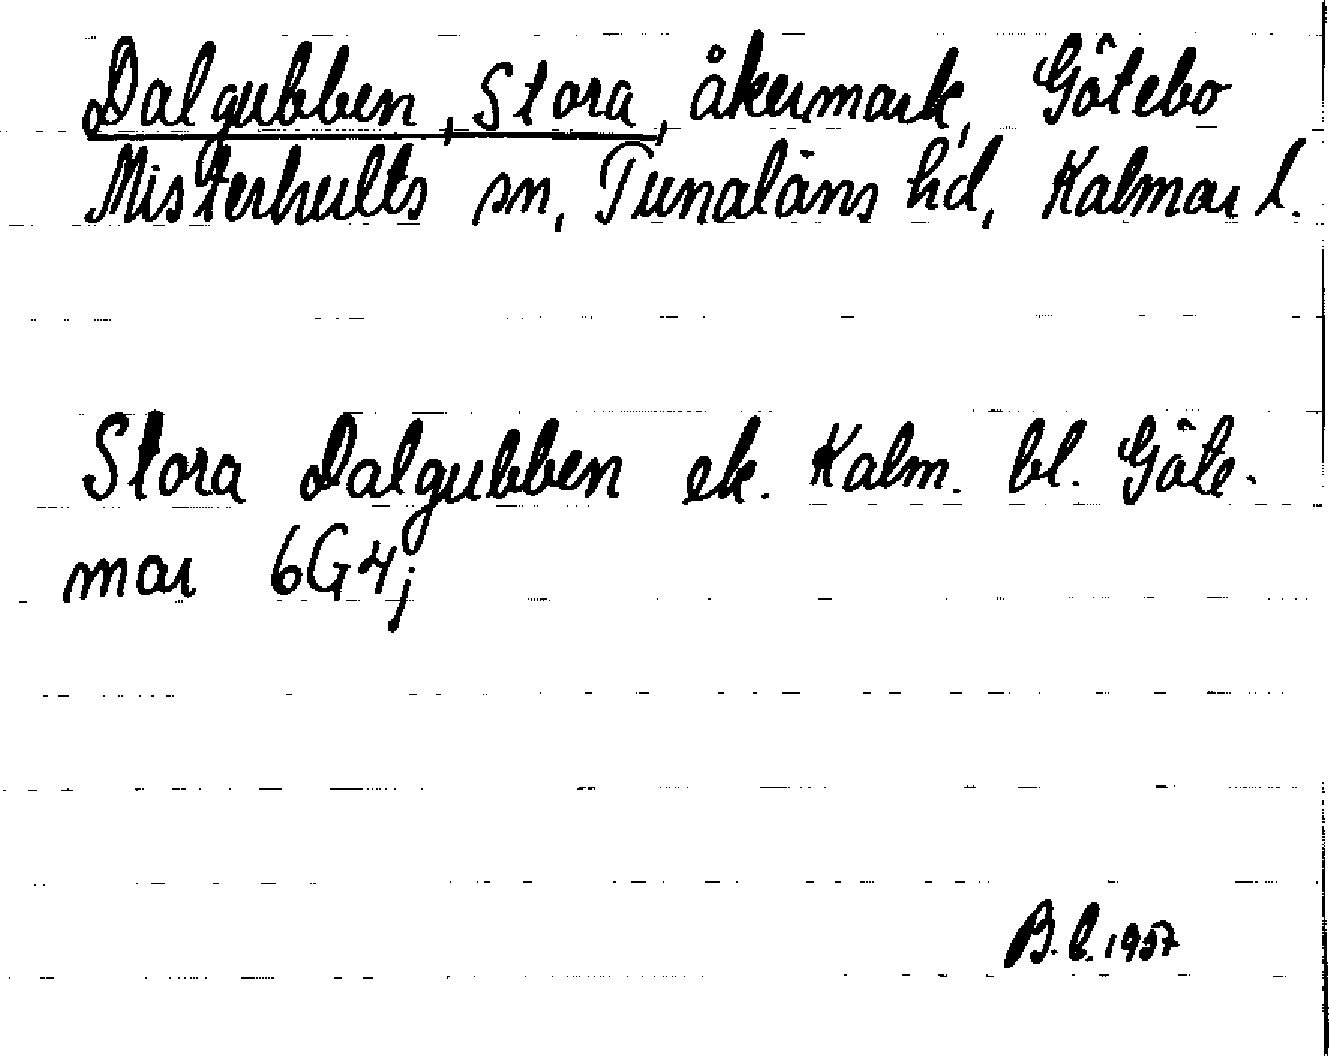 Dalgubben, Stora, åkermark, Götebo
Misterhults sn, Tunaläns hd, Kalmar l.
Stora Dalgubben ek. Kalm. bl. Göte-
mar 6G4j
B.L. 1957